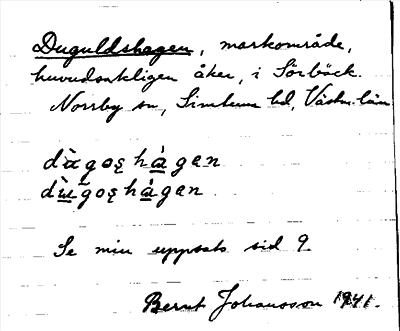 Duguldshagen, markområde,
huvudsakligen åker, i Sörböck.
Norrby sn, Simtuna hd, Västm. län
dàgoȩ hàgen
dùgoȩ hàgen
Se min uppsats sid 9.
Bernt Johansson 1941.